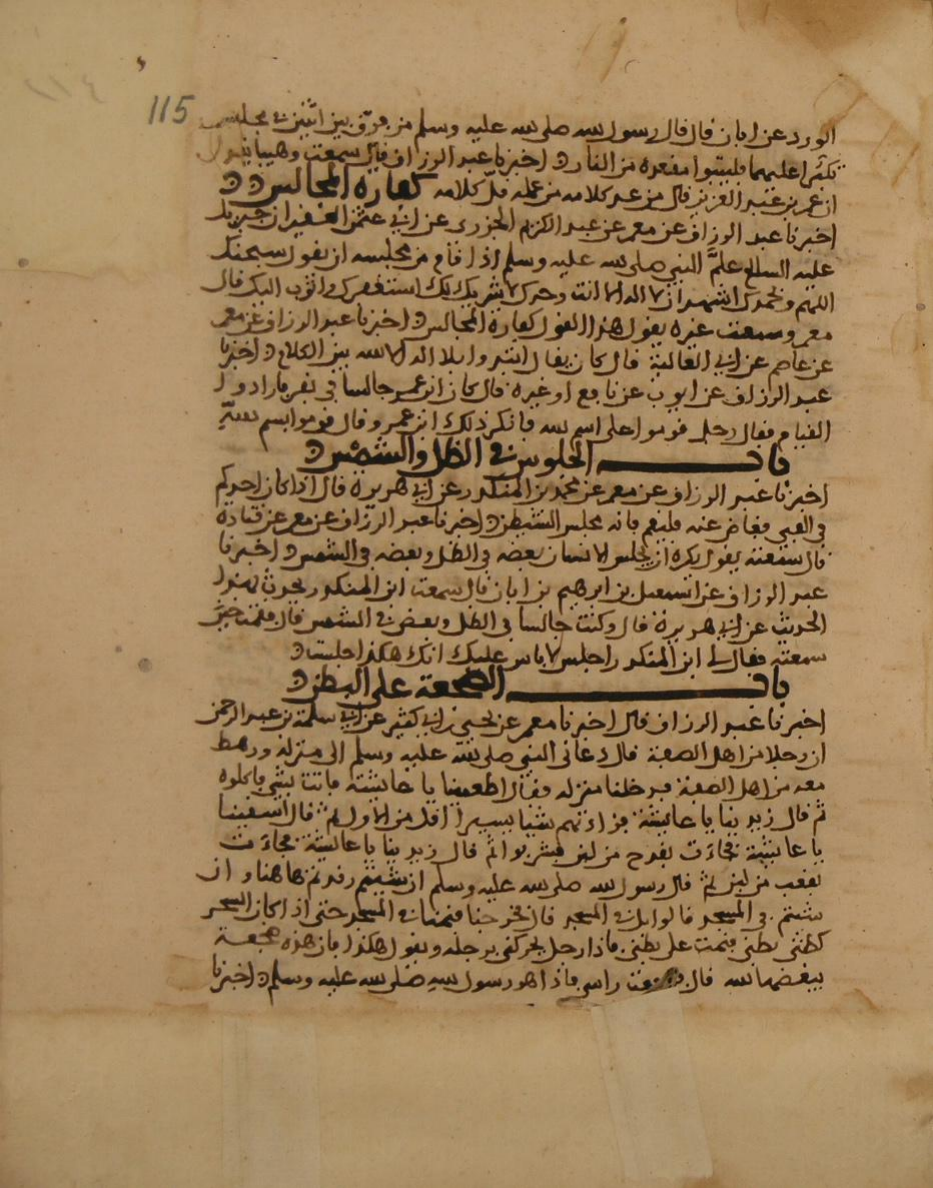 115
الورد عن ابان قال قال رسول الله صلى الله عليه وسلم من فرق بين اثنين في مجلس
تكبرا عليهما فليتبوا مقعده من النار اخبرنا عبد الرزاق قال سمعت وهيبا يقول
ان عمر بن عبد العزيز قال من عد كلامه من عمله قل كلامه كفارة المجالس
اخبرنا عبد الرزاق عن معمر عن عبد الكريم الجزري عن ابي عثمن الفقير ان جبريل
عليه السلام علم النبي صلى الله عليه وسلم اذا قام من مجلسه ان يقول سبحنك
اللهم وبحمدك اشهد ان لا اله الا انت وحدك لا شريك لك استغفرك واتوب اليك قال
معمر وسمعت غيره يقول هذا القول كفارة المجالس اخبرنا عبد الرزاق عن معمر
عن عاصم عن ابي العالية قال كان يقال ابتدروا بلا اله الا الله بين الكلام اخبرنا
عبد الرزاق عن ايوب عن نافع او غيره قال كان ابن عمر جالسا في نفر فارادوا
القيام فقال رجل قوموا على اسم الله فانكر ذلك ابن عمر وقال قوموا بسم الله
باب الجلوس في الظل والشمس
اخبرنا عبد الرزاق عن معمر عن محمد بن المنكدر عن ابي هريرة قال اذا كان احدكم
في الفي فقاض عنه فليقم فانه مجلس الشيطن اخبرنا عبد الرزاق عن معمر عن قتادة
قال سمعته يقول يكره ان يجلس الانسان بعضه في الظل وبعضه في الشمس اخبرنا
عبد الرزاق عن اسمعيل بن ابرهيم بن ابان قال سمعت ابن المنكدر يحدث بهذا
الحديث عن ابي هريرة قال وكنت جالسا في الظل وبعضي في الشمس قال فقمت حين
سمعته فقال لي ابن المنكدر اجلس لا باس عليك انك هكذا جلست
باب الضجعة على البطن
اخبرنا عبد الرزاق قال اخبرنا معمر عن يحيى بن ابي كثير عن ابي سلمة بن عبد الرحمن
ان رجلا من اهل الصفة قال دعاني النبي صلى الله عليه وسلم الى منزله ورهط
معه من اهل الصفة فدخلنا منزله فقال اطعمينا يا عايشة فاتت بشي فاكلوه
ثم قال زيدينا يا عايشة فزادتهم شيا يسيرا اقل من الاول ثم قال اسقينا
يا عايشة فجاءت بقدح من لبن فشربوا ثم قال زيدينا يا عايشة فجاءت
بقعب من لبن ثم قال رسول الله صلى الله عليه وسلم ان شيتم رقدتم هاهنا وان
شيتم في المسجد قالوا بل في المسجد قال فخرجنا فنمنا في المسجد حتى اذا كان السحر
كظني بطني فنمت على بطني فاذا رجل يحركني برجله ويقول هكذا فان هذه ضجعة
يبغضها الله قال فرفعت راسي فاذا هو رسول الله صلى الله عليه وسلم اخبرنا